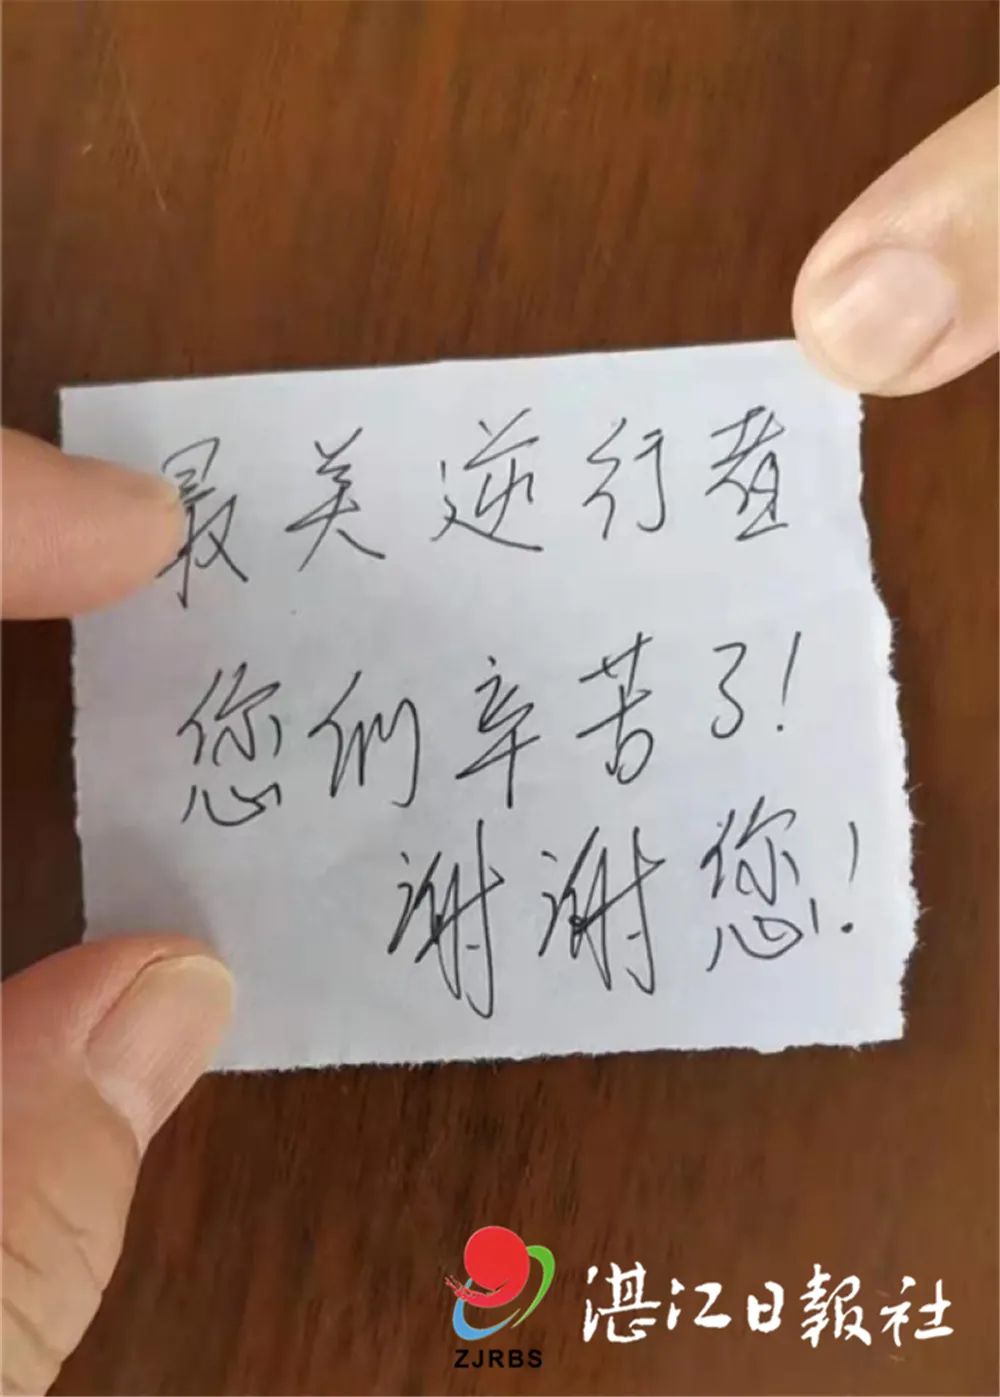 最美逆行者
您们辛苦了!
谢谢您!
ZJRBS
湛江日報社